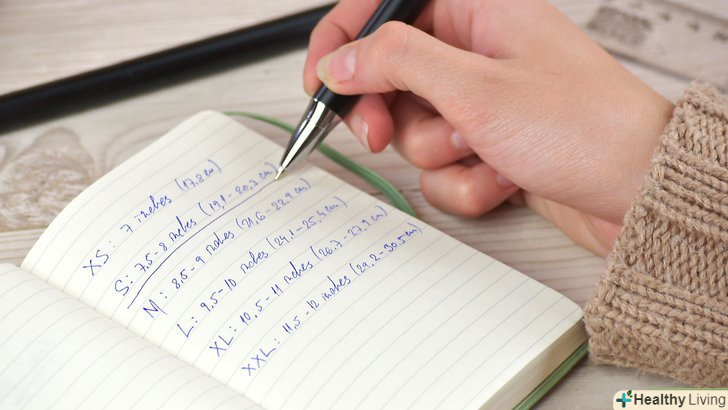 XS: 7 inches (17,8 cm)
S: 7,5-8 inches (19,1-20,3 cm)
M: 8,5-9 inches (21,6-22,9 cm)
L: 9,5-10 inches (24,1-25,4 cm)
XL: 10,5-11 inches (26,7-27,9 cm)
XXL: 11,5-12 inches (29,2-30,5 cm)
Healthy Living